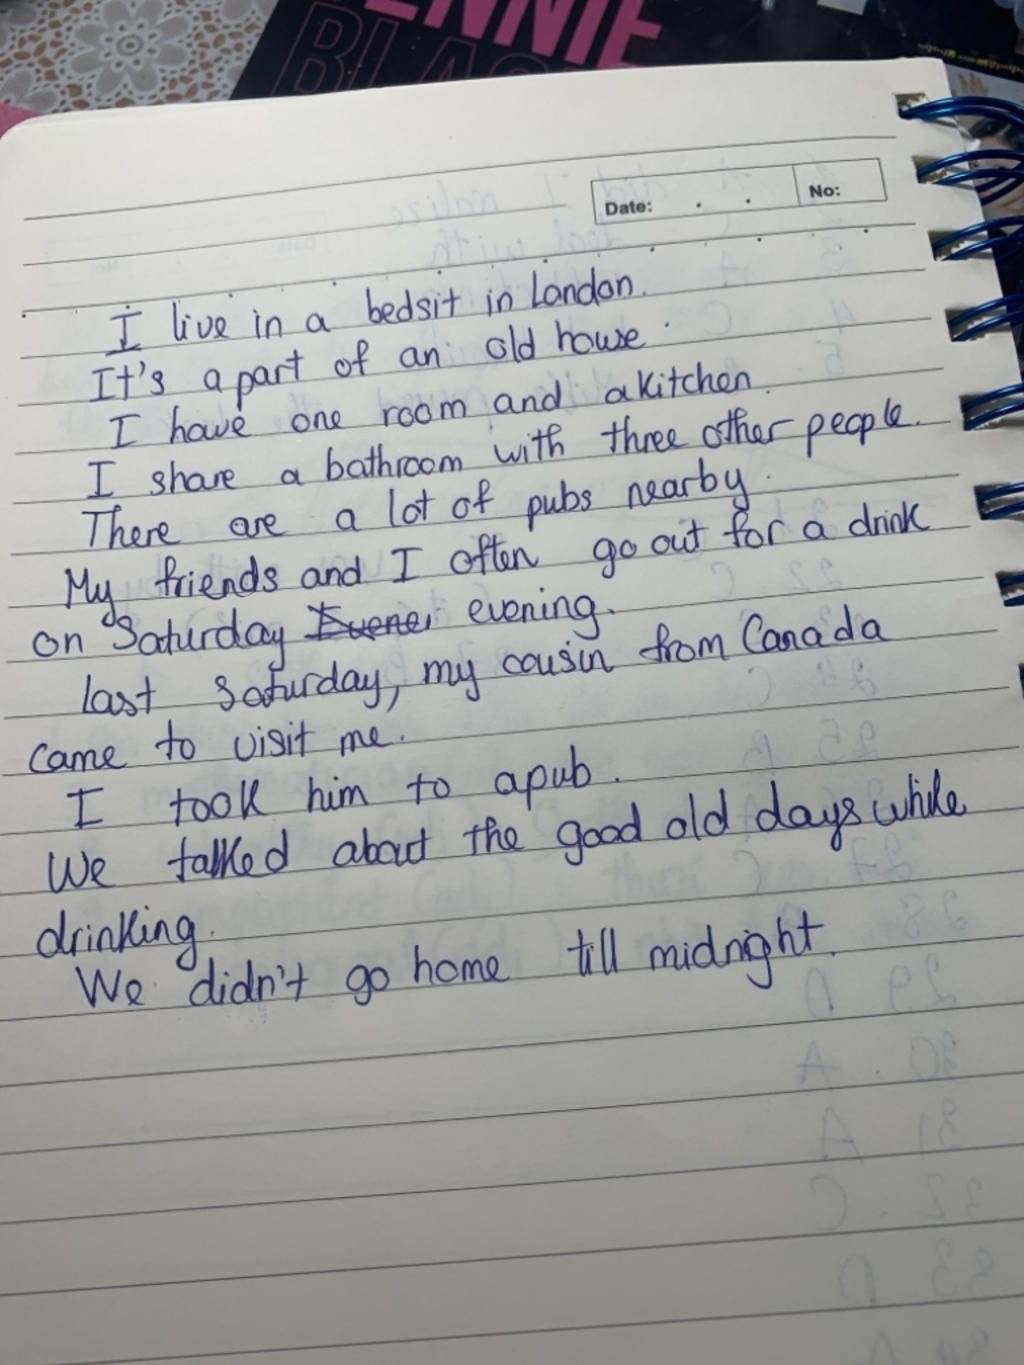 NNIE
BLAC
Date: . . No:
I live in a bedsit in London.
It's a part of an old house.
I have one room and a kitchen.
I share a bathroom with three other people.
There are a lot of pubs nearby.
My friends and I often go out for a drink
on Saturday evening.
last Saturday, my cousin from Canada
came to visit me.
I took him to a pub.
We talked about the good old days while
drinking.
We didn't go home till midnight.